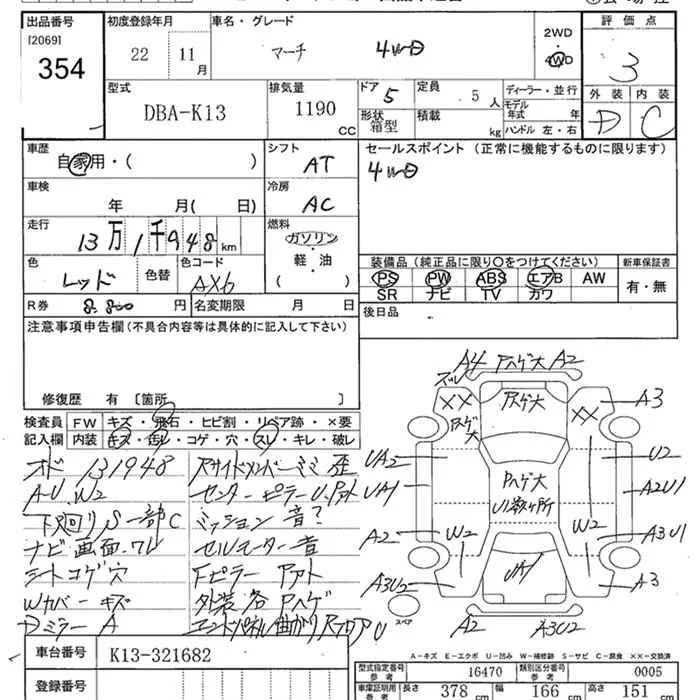 出品番号 初度登録年月 車名・グレード 評価点
[2069]
354
22 11月 マーチ 4WD 2WD・4WD 3
型式 排気量 ドア 5 定員 5人 ディーラー・並行 外装 内装
DBA-K13 1190CC 形状 箱型 積載 kg モデル年式 年 D C
ハンドル 左・右
車歴 シフト セールスポイント (正常に機能するものに限ります)
自家用・( ) AT 4WD
車検 冷房
年 月( 日) AC
走行 燃料
13万1千948km ガソリン
軽・油
( )
色 色替 色コード 装備品(純正品に限り〇をつけてください) 新車保証書
レッド AX6 PS PW ABS エアB AW 有・無
SR ナビ TV カワ
R券 8,800円 名変期限 月 日 後日品
注意事項申告欄(不具合内容等は具体的に記入して下さい)
修復歴 有 〔箇所
検査員記入欄 FW キズ・飛石・ヒビ割・リペア跡・×要
内装 キズ・汚レ・コゲ・穴・スレ・キレ・破レ
オド 131948
A-U.W2
下廻りS 一部C ミッション 音?
ナビ画面ワレ セルモーター音
シートコゲ穴 Fピラー Pアト
Wカバーキズ 外装各Pハゲ
Dミラー A
A4 Pハゲ大 A2
XX Pハゲ大 XX A3
Pハゲ大
UA2 U2
UA1 Pハゲ大 A2U1
U1数ヶ所
A2 W2 W2 A3U1
A3U2 UA1 A3
スペア A2 A3U2
A-キズ E-エクボ U-凹み W-補修跡 S-サビ C-腐食 XX-交換済
車台番号 K13-321682
登録番号
型式指定番号 参考 16470 類別区分番号 参考 0005
車庫証明用 参考 長さ 378cm 幅 166cm 高さ 151cm